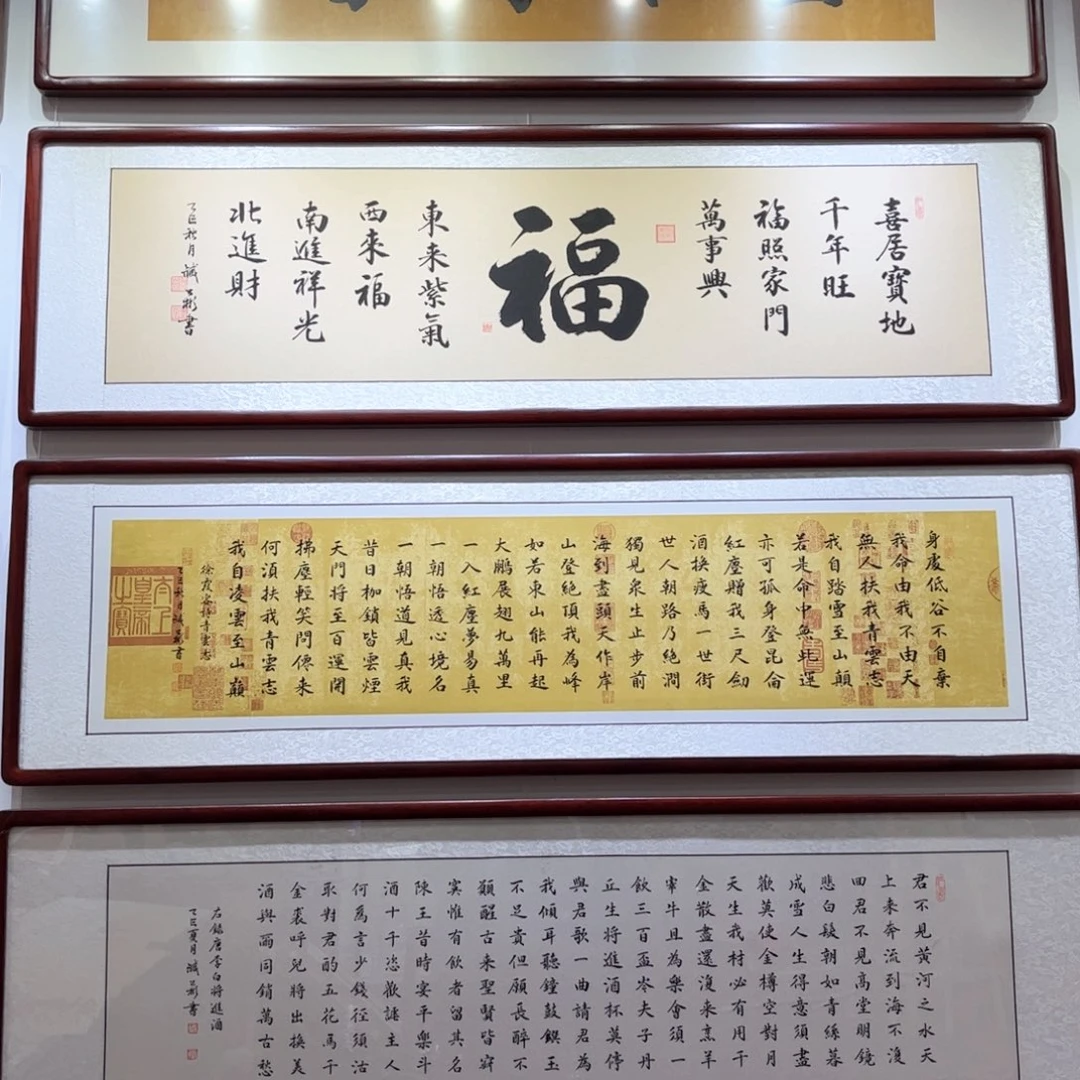 喜居寶地
千年旺
福照家門
萬事興
福
東来紫氣
西來福
南進祥光
北進財
乙巳秋月 誠 彬書
身處低谷不自棄
我命由我不由天
無人扶我青雲志
我自踏雪至山顛
若是命中無此運
亦可孤身登昆侖
紅塵贈我三尺劍
酒換瘦馬一世街
世人朝路乃絕澗
獨見衆生止步前
海到盡頭天作岸
山登絕頂我為峰
如若東山能再起
大鵬展翅九萬里
一入紅塵夢易真
一朝悟透心境名
一朝悟道見真我
昔日枷鎖皆雲煙
天門将至百運開
拂塵輕笑問僊来
何須扶我青雲志
我自凌雲至山巔
徐霞客詩青雲志
乙巳秋月誠 彬書
君不見黃河之水天
上来奔流到海不復
回君不見高堂明鏡
悲白髮朝如青絲暮
成雪人生得意須盡
歡莫使金樽空對月
天生我材必有用千
金散盡還復来烹羊
宰牛且為樂會須一
飲三百盃岑夫子丹
丘生將進酒杯莫停
與君歌一曲請君為
我傾耳聽鐘鼓饌玉
不足貴但願長醉不
願醒古来聖賢皆寂
寞惟有飲者留其名
陳王昔時宴平樂斗
酒十千恣歡謔主人
何為言少錢径須沽
取對君酌五花馬千
金裘呼兒將出換美
酒與爾同銷萬古愁
右錄唐李白將進酒
乙巳夏月誠 彬書